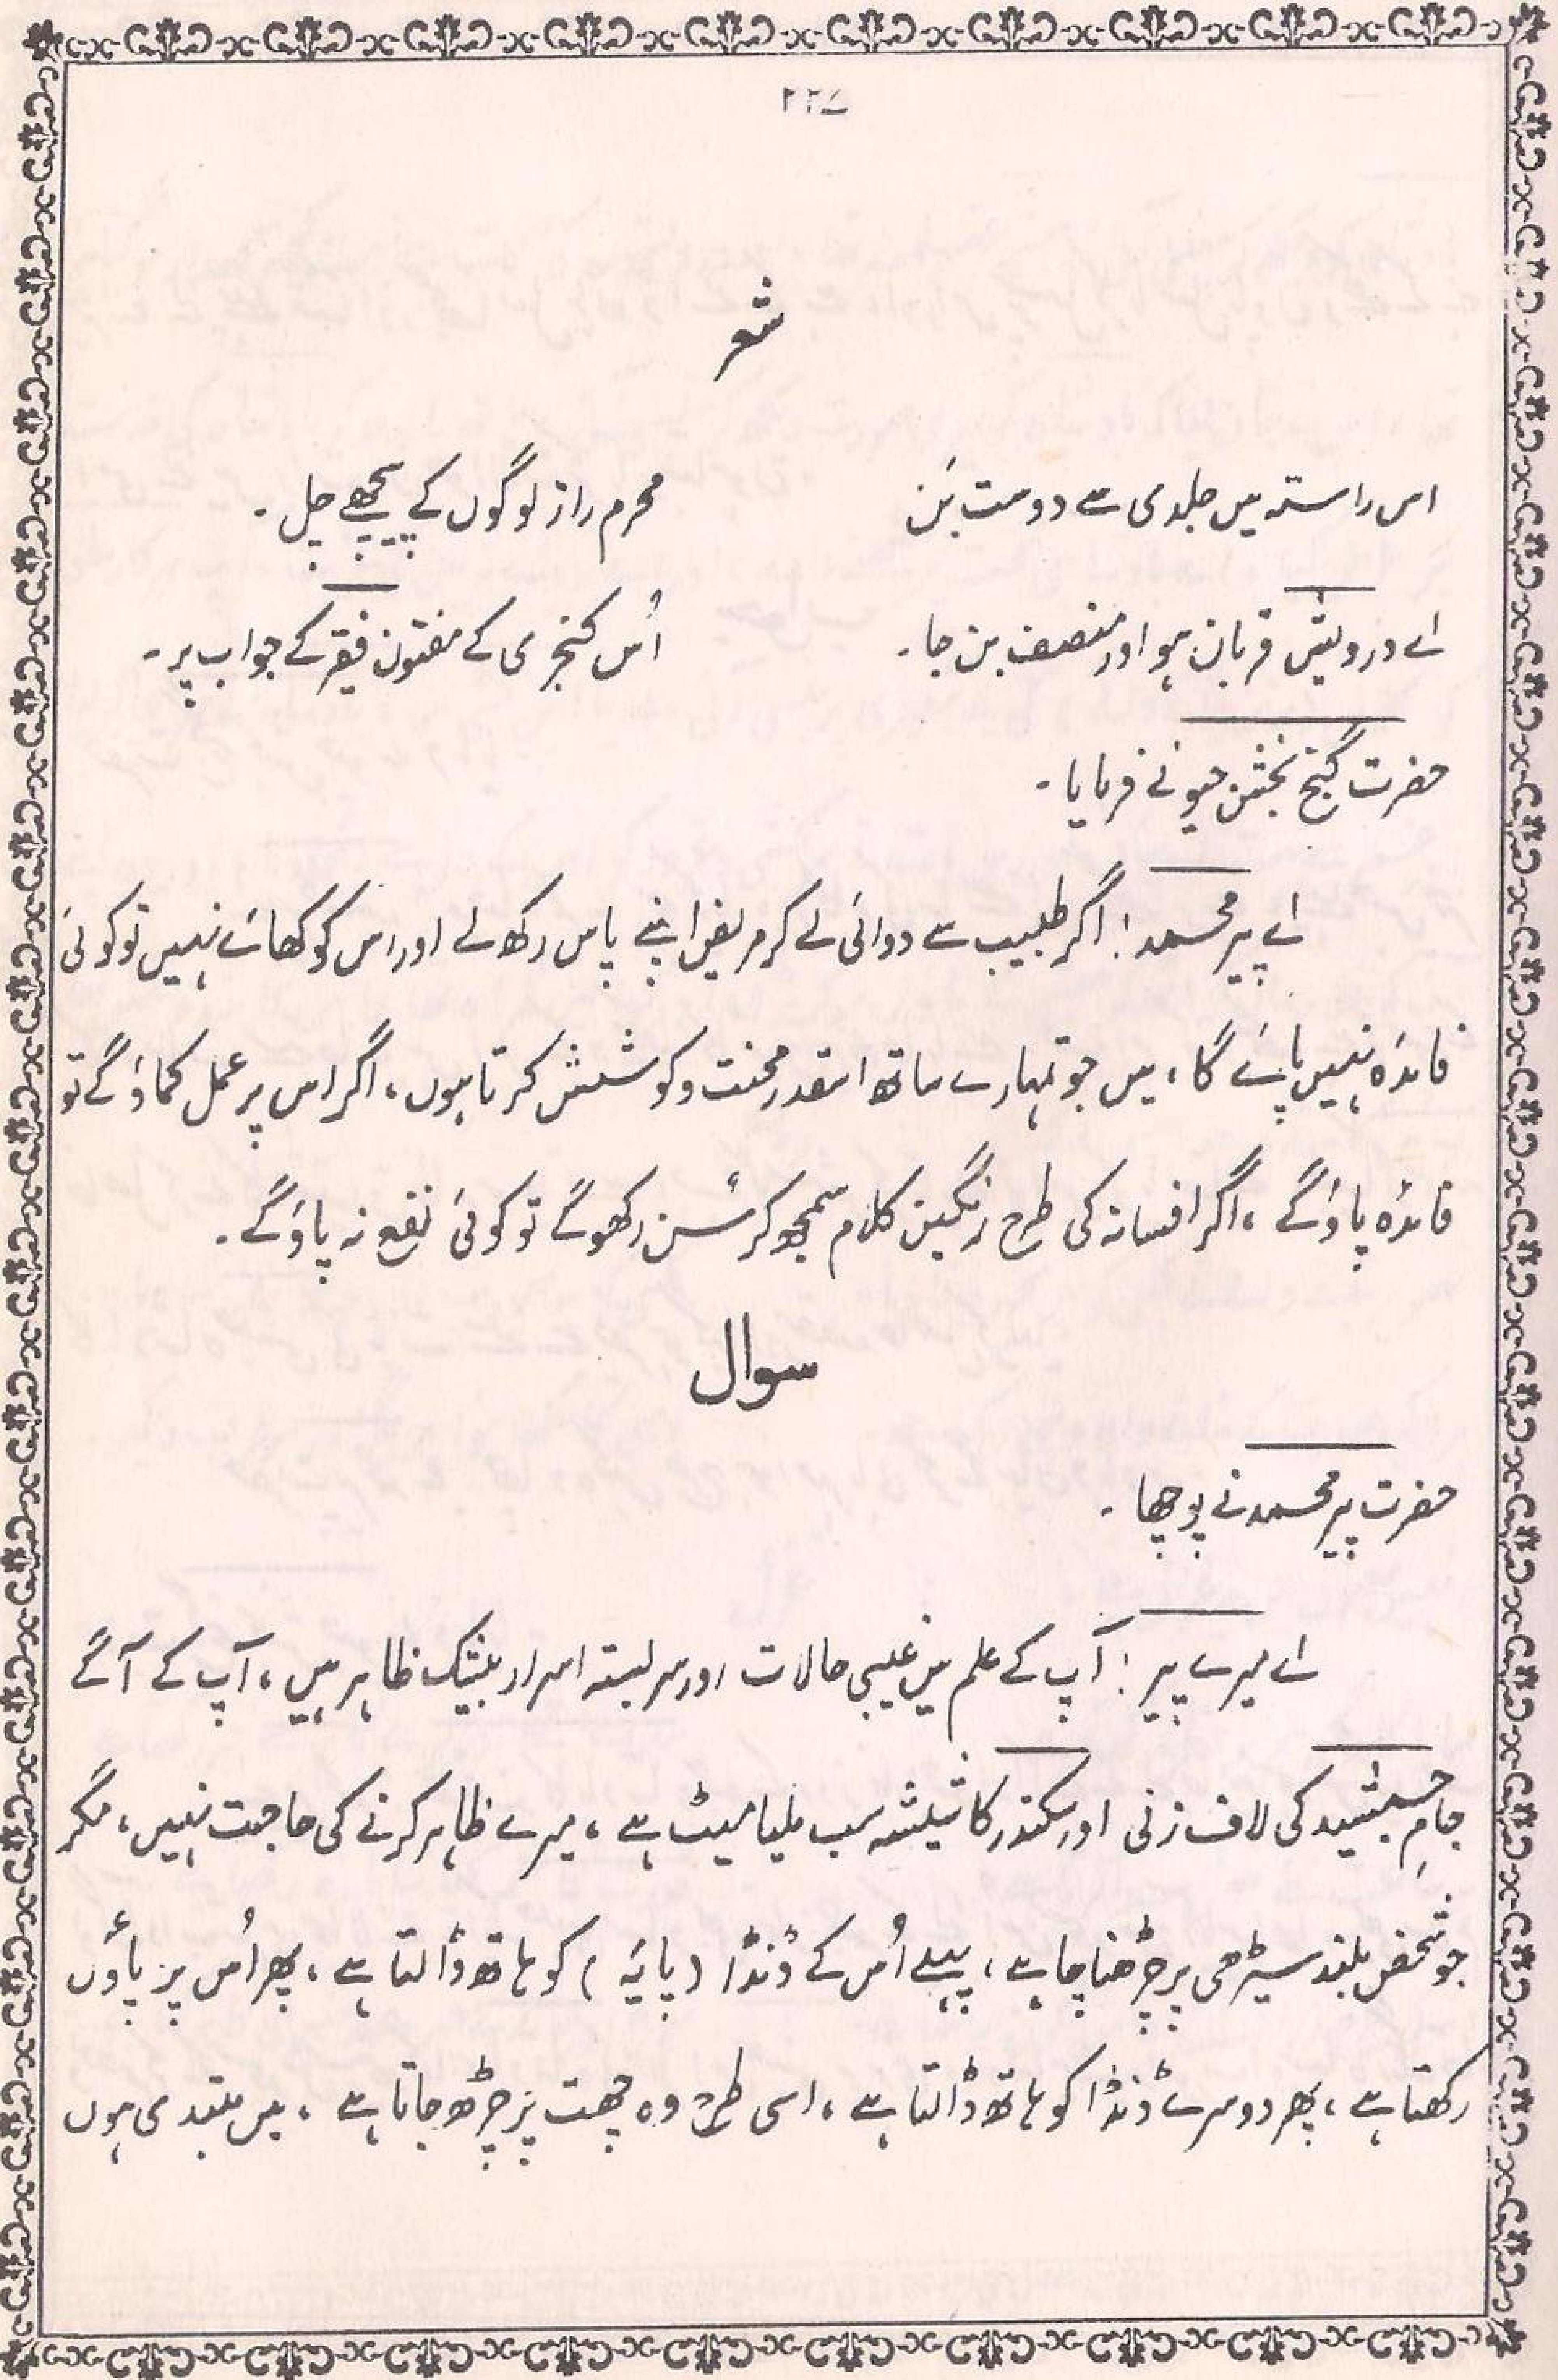 ۲۲۷
شعر
اس راستہ میں جلدی سے دوست بَن محرم راز لوگوں کے پیچھے چل۔
اے درویش قربان ہو اور منصف بن جا۔ اُس کنجری کے مفتون فقیر کے جواب پر۔
حضرت گنج بخش جیو نے فرمایا۔
اے پیر محمد! اگر طبیب سے دوائی لے کر مریض اپنے پاس رکھ لے اور اس کو کھائے نہیں تو کوئی
فائدہ نہیں پائے گا، میں جو تمہارے ساتھ اسقدر محنت و کوشش کرتا ہوں، اگر اس پر عمل کماؤ گے تو
فائدہ پاؤ گے، اگر افسانہ کی طرح رنگین کلام سمجھ کر سُن رکھو گے تو کوئی نفع نہ پاؤ گے۔
سوال
حضرت پیر محمد نے پوچھا۔
اے میرے پیر! آپ کے علم میں غیبی حالات اور سربستہ اسرار بیشک ظاہر ہیں، آپ کے آگے
جامِ جمشید کی لاف زنی اور سکندر کا شیشہ سب ملیا میٹ ہے، میرے ظاہر کرنے کی حاجت نہیں، مگر
جو شخص بلند سیڑھی پر چڑھنا چاہے، پہلے اُس کے ڈنڈا (پایَہ) کو ہاتھ ڈالتا ہے، پھر اُس پر پاؤں
رکھتا ہے، پھر دوسرے ڈنڈا کو ہاتھ ڈالتا ہے، اسی طرح وہ چھت پر چڑھ جاتا ہے، میں مبتدی ہوں